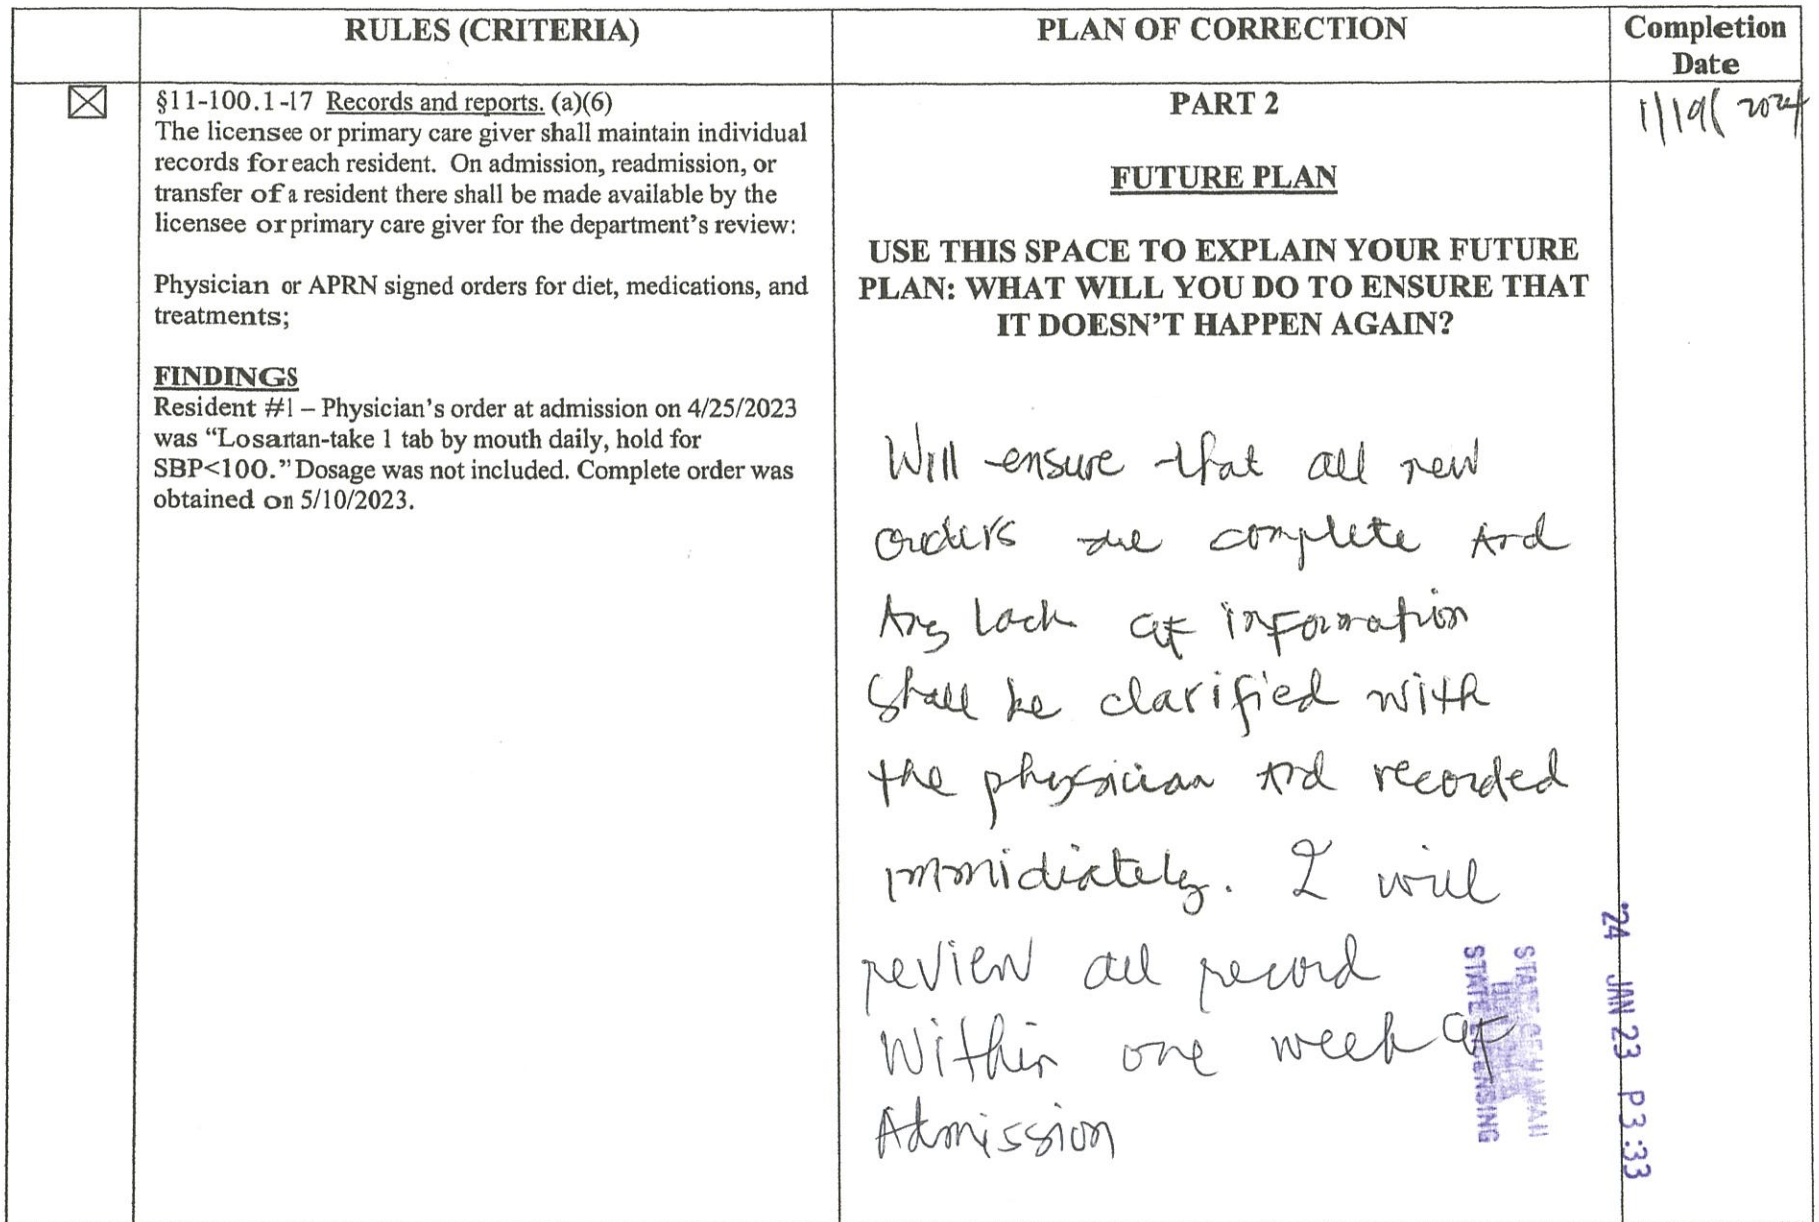 RULES (CRITERIA)
PLAN OF CORRECTION
Completion
Date
§11-100.1-17 Records and reports. (a)(6)
The licensee or primary care giver shall maintain individual
records for each resident. On admission, readmission, or
transfer of a resident there shall be made available by the
licensee or primary care giver for the department's review:
Physician or APRN signed orders for diet, medications, and
treatments;
FINDINGS
Resident #1 – Physician's order at admission on 4/25/2023
was "Losartan-take 1 tab by mouth daily, hold for
SBP<100." Dosage was not included. Complete order was
obtained on 5/10/2023.
PART 2
FUTURE PLAN
USE THIS SPACE TO EXPLAIN YOUR FUTURE
PLAN: WHAT WILL YOU DO TO ENSURE THAT
IT DOESN'T HAPPEN AGAIN?
Will ensure that all new
orders are complete And
Any lack of information
shall be clarified with
the physician And recorded
immidiately. I will
review all record
Within one week of
Admission
1/19/2024
STATE OF HAWAII
STATE LICENSING
'24 JAN 23 P3:33